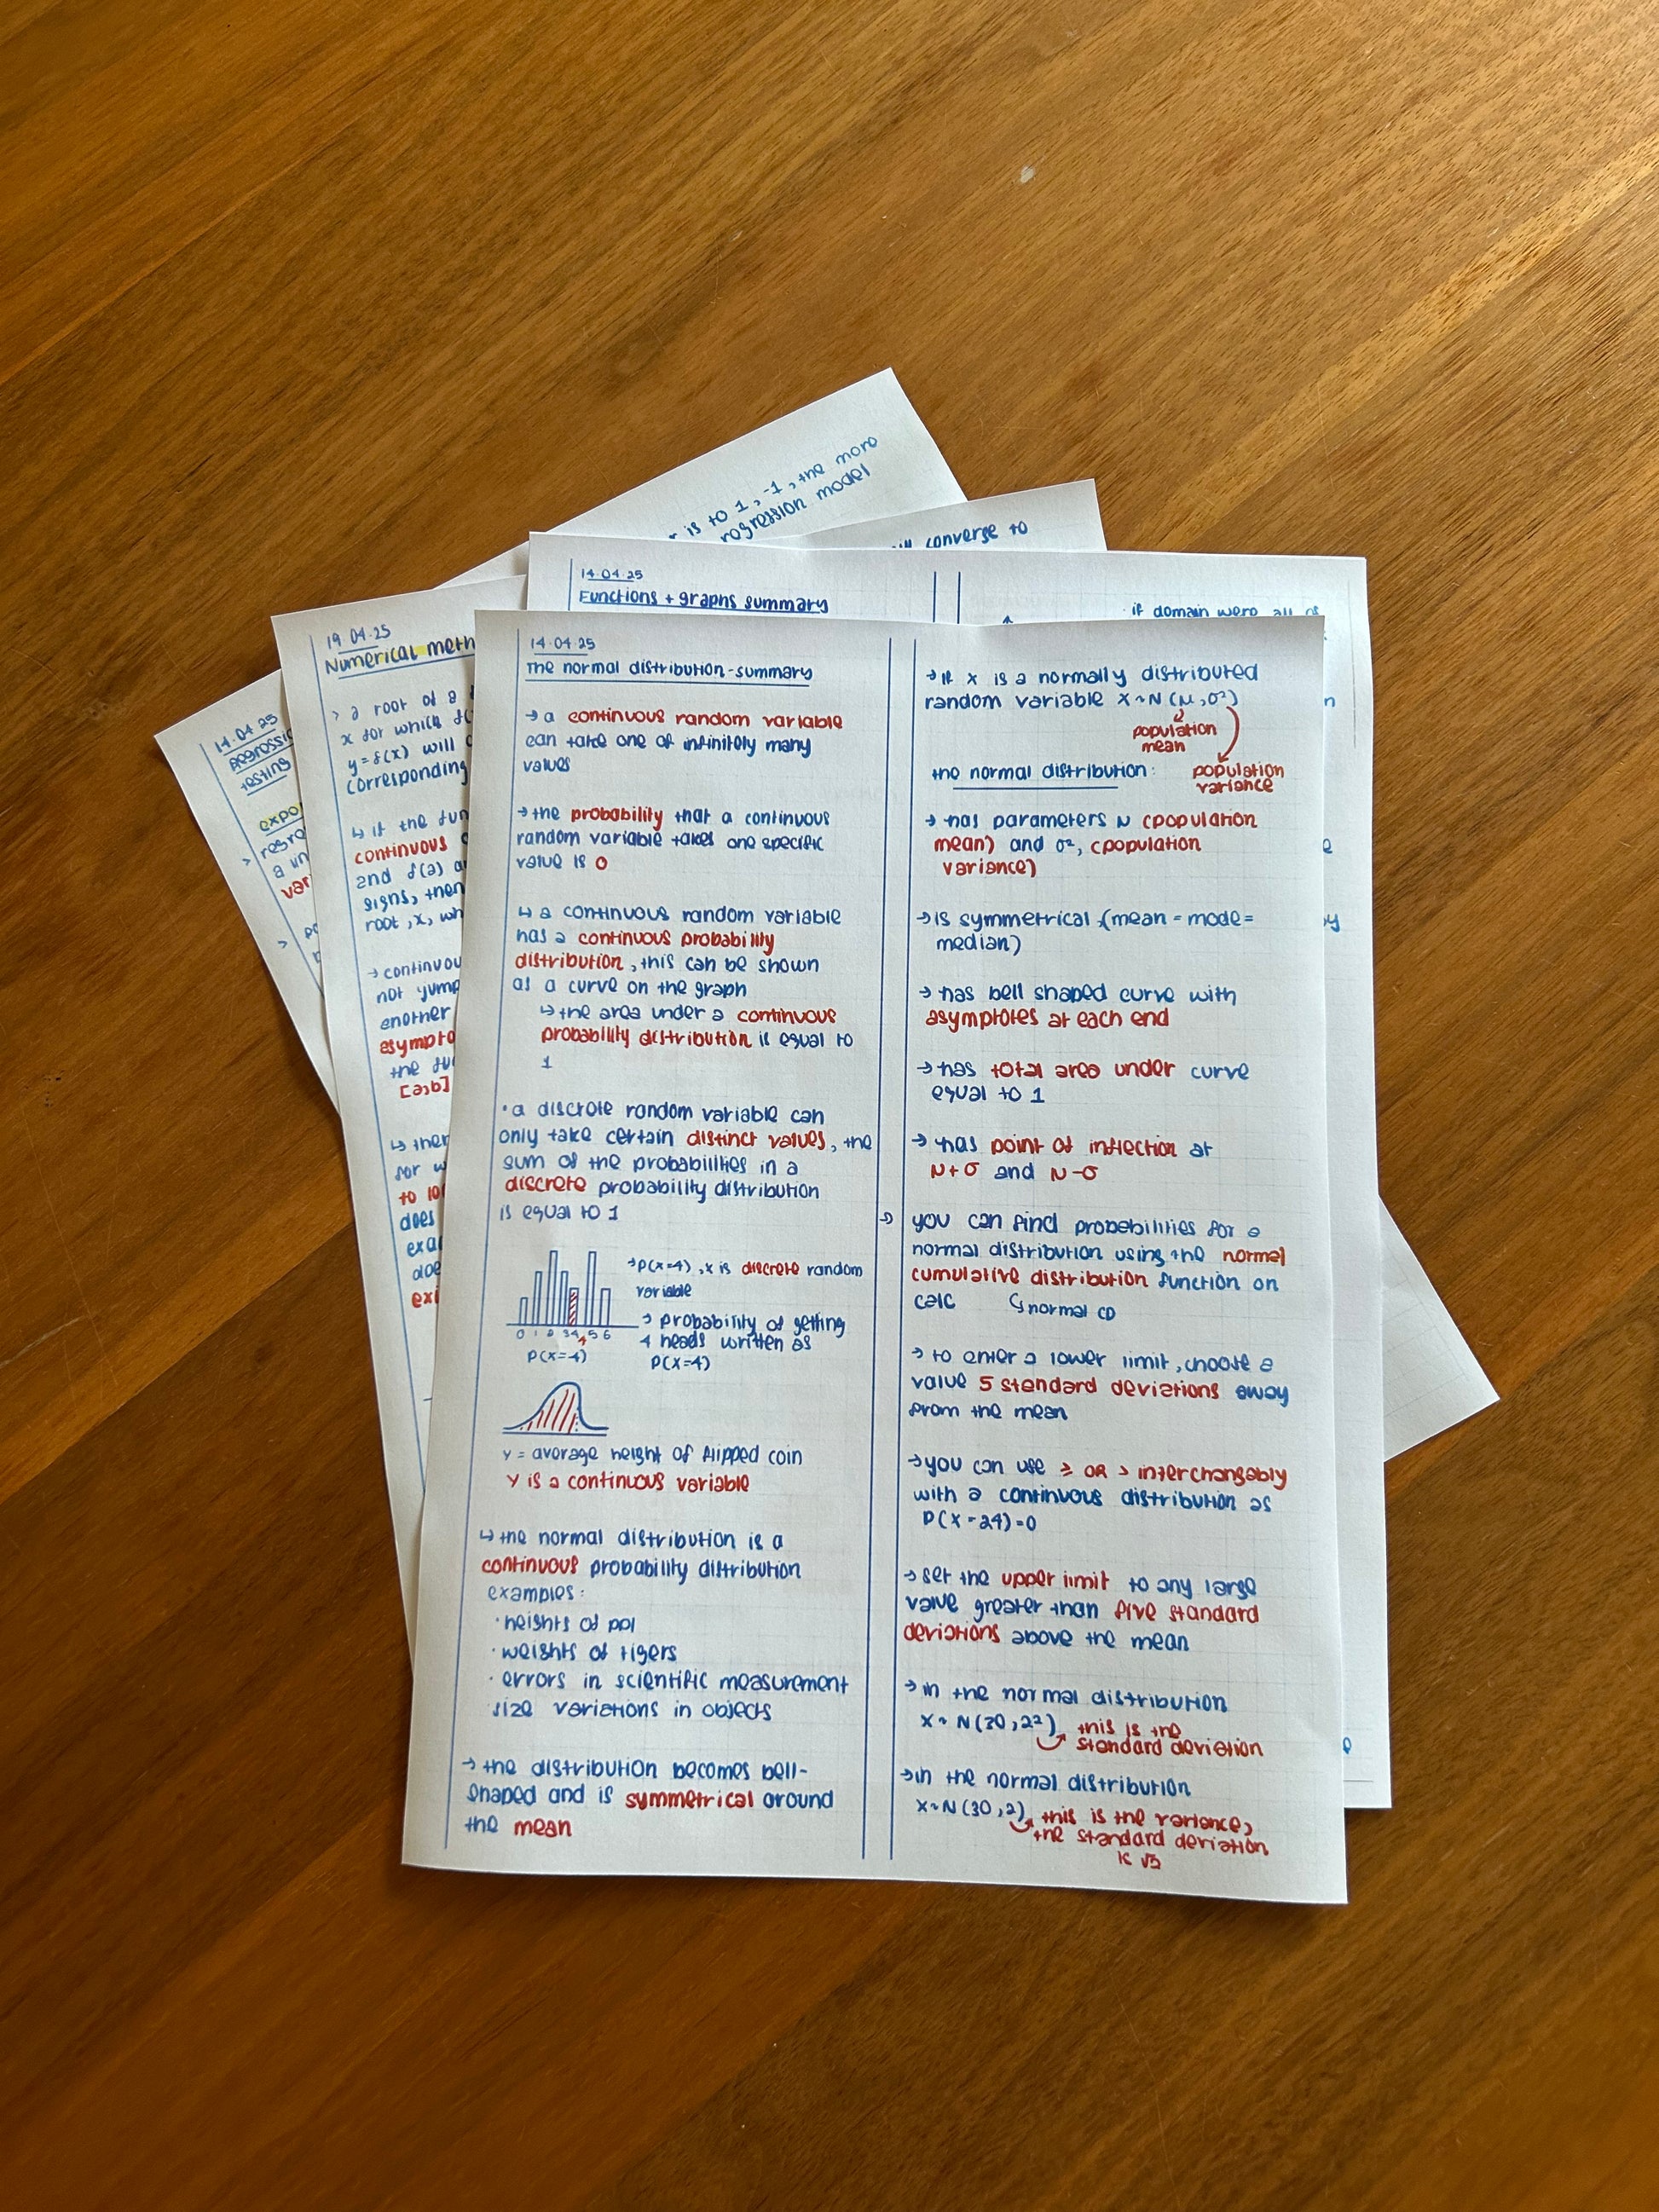 r is to 1, -1, the more
regression model
converge to
14.04.25
Functions + graphs summary
if domain were all of
14.04.25
Regressi
testing
expo
> regre
a in
vari
> po
19.04.25
Numerical meth
> a root of a f
x for which f(
y = f(x) will c
corresponding
↳ if the fun
continuous o
and f(a) a
signs, then
root, x, wh
→ continuou
not jump
another
asympto
the fu
[a,b]
↳ ther
for w
to lo
does
exa
doe
exi
14.04.25
The normal distribution - summary
→ a continuous random variable
can take one of infinitely many
values
→ the probability that a continuous
random variable takes one specific
value is 0
↳ a continuous random variable
has a continuous probability
distribution, this can be shown
as a curve on the graph
↳ the area under a continuous
probability distribution is equal to
1
• a discrete random variable can
only take certain distinct values, the
sum of the probabilities in a
discrete probability distribution
is equal to 1
0 1 2 3 4 5 6
P(X=4)
→ P(X=4), x is discrete random
variable
→ probability of getting
4 heads written as
P(X=4)
Y = average height of flipped coin
Y is a continuous variable
↳ the normal distribution is a
continuous probability distribution
examples:
• heights of ppl
• weights of tigers
• errors in scientific measurement
• size variations in objects
→ the distribution becomes bell-
shaped and is symmetrical around
the mean
→ if X is a normally distributed
random variable X ~ N(μ, σ²)
population
mean
population
variance
the normal distribution:
→ has parameters μ (population
mean) and σ², (population
variance)
→ is symmetrical (mean = mode =
median)
→ has bell shaped curve with
asymptotes at each end
→ has total area under curve
equal to 1
→ has point of inflection at
μ+σ and μ-σ
→ you can find probabilities for a
normal distribution using the normal
cumulative distribution function on
calc ↳ normal CD
→ to enter a lower limit, choose a
value 5 standard deviations away
from the mean
→ you can use ≥ OR > interchangably
with a continuous distribution as
P(X=24)=0
→ set the upper limit to any large
value greater than five standard
deviations above the mean
→ in the normal distribution
X ~ N(30, 2²) this is the
standard deviation
→ in the normal distribution
X ~ N(30, 2) this is the variance,
the standard deviation
is